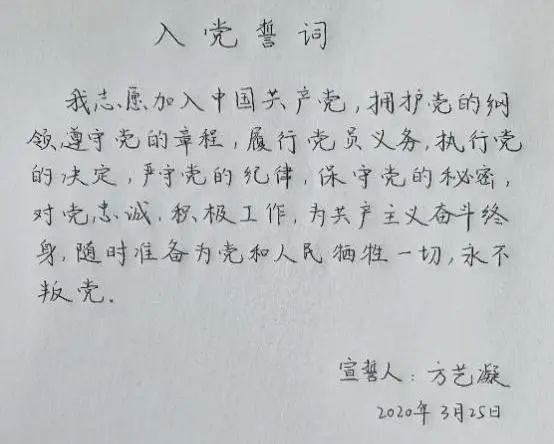 入党誓词
我志愿加入中国共产党，拥护党的纲
领，遵守党的章程，履行党员义务，执行党
的决定，严守党的纪律，保守党的秘密，
对党忠诚，积极工作，为共产主义奋斗终
身，随时准备为党和人民牺牲一切，永不
叛党．
宣誓人：方艺凝
2020年3月25日